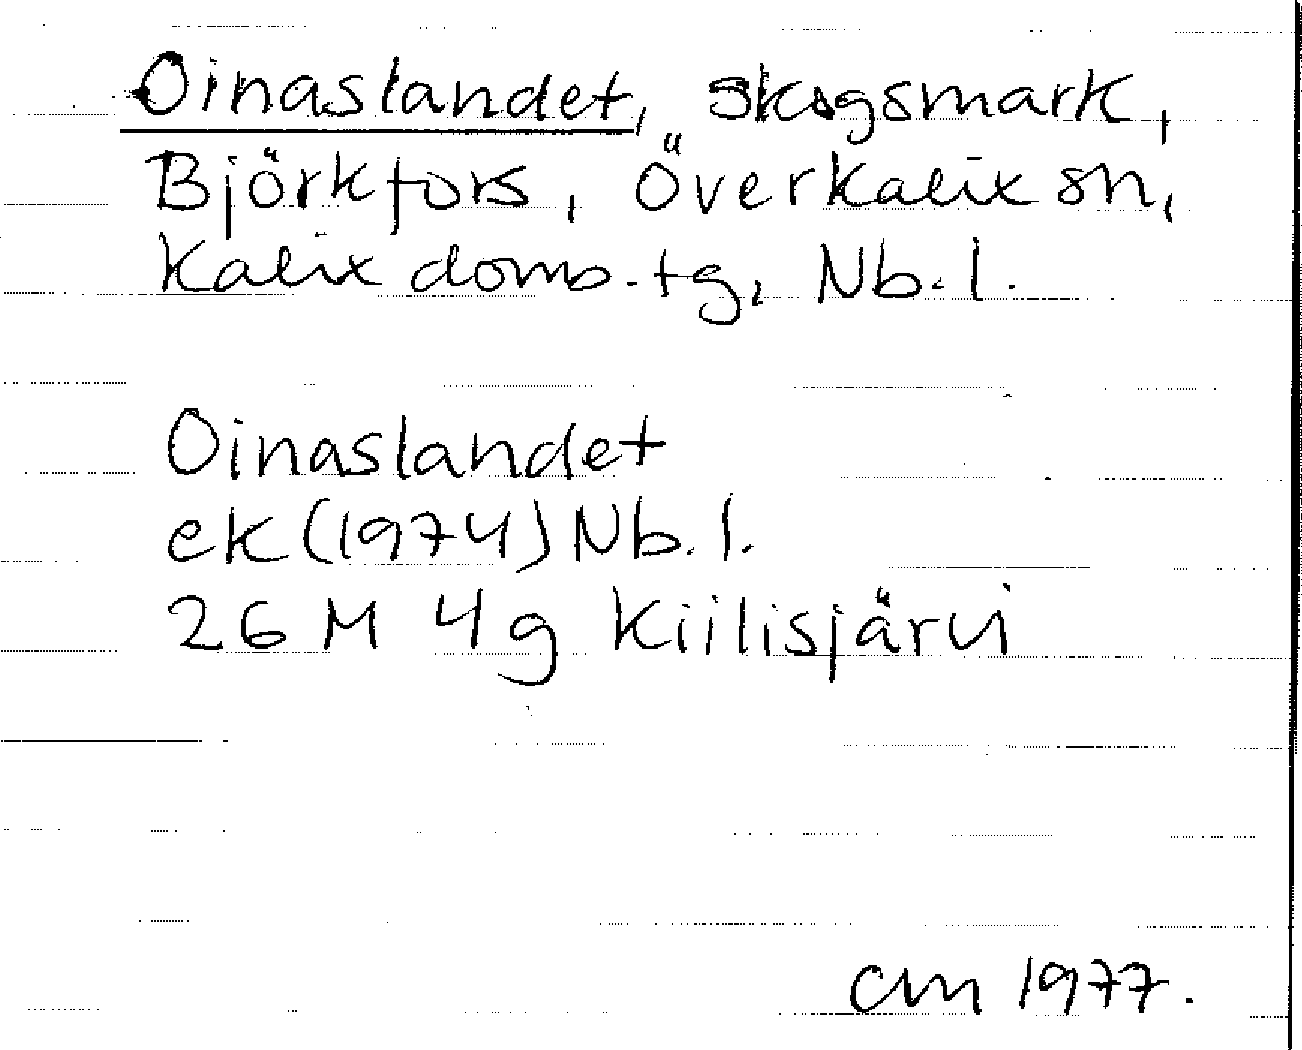 Oinaslandet, skogsmark,
Björkfors, Överkalix sn,
Kalix doms.tg, Nb.l.
Oinaslandet
ek (1974) Nb.l.
26 M 4g Kiilisjärvi
CM 1977.